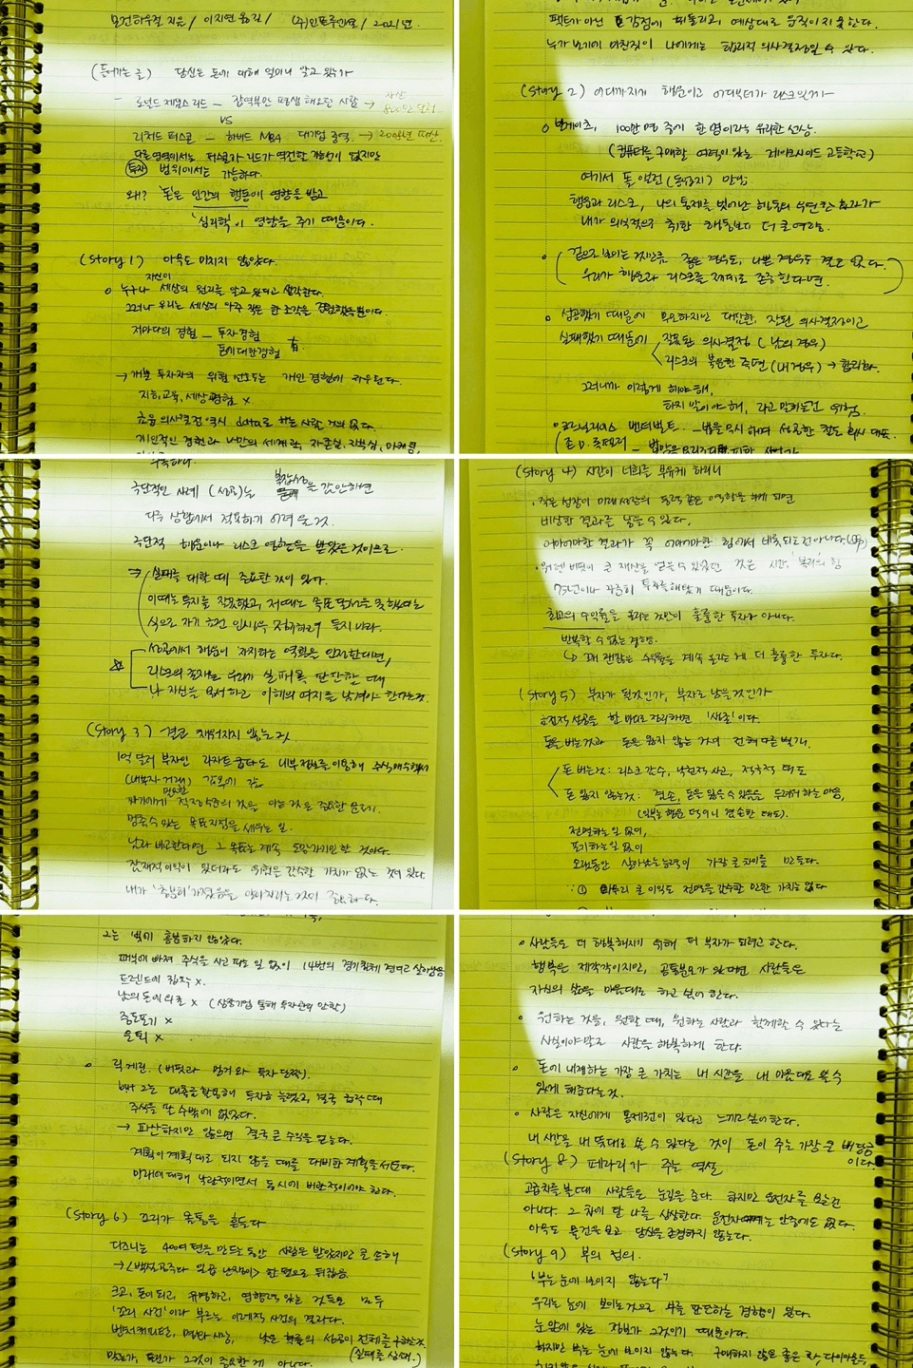 모건 하우절 지음 / 이지연 옮김 / (주)인플루엔셜 / 2021년.
(들어가는 글) 당신은 돈에 대해 얼마나 알고 있는가
- 로널드 제임스 리드 - 잡역부인 평생 해오던 사람 →
VS
리처드 퍼스콘 - 하버드 MBA 대기업 중역 →
다른 영역에서는 퍼스콘과 리드가 역전할 가능성이 없지만
투자 범위에서는 가능하다.
왜? '돈'은 인간의 행동에 영향을 받고
'심리학'이 영향을 주기 때문이다.
(Story 1) 아무도 미치지 않았다.
누구나 자신이 세상의 원리를 알고 있다고 생각한다.
그러나 우리는 세상의 아주 작은 한 조각을 경험했을뿐이다
저마다의 경험 - 투자경험
돈에 대한 경험
→ 개별 투자자의 위험 선호도는 개인 경험에 좌우된다.
지능, 교육, 세상경험 x
금융 의사결정 역시 data로 하는 사람 거의 없다.
개인적인 경험과 나만의 세계관, 자존심, 자부심, 마케팅,
팩트가 아닌 감정에 휘둘리고, 예상대로 움직이지 못한다.
누가 보기에 미친짓이 나에게는 합리적 의사결정일 수 있다.
(Story 2) 어디까지가 행운이고 어디부터가 리스크인가
빌게이츠, 100만 명 중에 한 명이라는 유리한 선상.
(컴퓨터를 구매할 여력이 있는 레이크사이드 고등학교)
여기서 폴 앨런 (동업자) 만남
행운과 리스크, 나의 통제를 벗어난 행동의 우연한 효과가
내가 의식적으로 취한 행동보다 더 클 수 있음.
겉으로 보이는 것만큼 좋은 경우도, 나쁜 경우도 결코 없다.
우리가 행운과 리스크를 제대로 존중한다면
성공했기 때문에 무모하지만 대담한, 잘된 의사결정이고
실패했기 때문에 잘못된 의사결정 (남의 경우)
리스크의 불운한 측면 (내 경우) → 합리화.
그러니까 이렇게 해야 해,
하지 말아야 해, 라고 말하는건 위험.
코넬리어스 밴더빌트 - 법을 무시하며 성공한 철도 회사 대표.
극단적인 사례 (성공)는 복잡성을 감안하면
다른 상황에서 적용하기 어려울 것.
극단적 행운이나 리스크 영향을 받았을 것이므로.
실패를 대할 때 중요한 것이 있다.
나 자신을 용서하고 이해의 여지를 남겨야 한다는것.
(Story 3) 결코 채워지지 않는 것
1억 달러 부자인 라자트 굽타도 내부정보를 이용해 주식매수해서
(내부자 거래) 감옥에 감
멈출 수 있는 목표지점을 세우는 일.
남과 비교한다면 그 목표는 계속 도망가기만 할 것이다.
잠재적 이익이 있더라도 위험을 감수할 가치가 없는 것이 있다
내가 '충분히' 가졌음을 알아차리는 것이 중요하다.
(Story 4) 시간이 너희를 부유케 하리니
작은 성장이 미래 성장의 동력 같은 역할을 하게 되면
비상한 결과를 낳을 수 있다.
어마어마한 결과가 꼭 어마어마한 힘에서 비롯되는건 아니다.
워렌 버핏이 큰 재산을 얻을 수 있었던 것은 시간. '복리'의 힘
75년이나 꾸준히 투자를 해왔기 때문이다.
최고의 수익률을 올리는 것만이 훌륭한 투자가 아니다.
반복할 수 없는 경향.
↳ 꽤 괜찮은 수익률을 계속 올리는 게 더 훌륭한 투자다.
(Story 5) 부자가 될것인가, 부자로 남을것인가
금전적 성공을 한 마디로 정리하면 '생존'이다.
돈을 버는것과 돈을 잃지 않는 것이 전혀 다른 별개.
돈 버는것: 리스크 감수, 낙천적 사고, 적극적 태도
돈 잃지 않는것: 겸손, 돈을 잃을 수 있음을 두려워 하는 마음,
전멸하는 일 없이,
포기하는 일 없이
오랫동안 살아남는 능력이 가장 큰 차이를 만든다.
그는 빚에 흥분하지 않았다.
패닉에 빠져 주식을 사고 파는 일 없이 14번의 경기침체 견디고 살아남음
트렌드에 집착 x.
남의 돈에 의존 x (상장기업 통해 투자금의 안착)
중도포기 x
은퇴 x
릭 게린. (버핏과 멍거와 투자 단짝).
but 그는 대출금 활용해 투자를 늘렸고, 결국 급락 때
주식을 팔 수밖에 없었다.
→ 파산하지만 않으면 결국 큰 수익을 얻는다.
계획이 계획대로 되지 않을 때를 대비한 계획을 세운다.
미래에 대해 낙관적이면서 동시에 비관적이어야 한다.
(Story 6) 꼬리가 몸통을 흔든다
디즈니는 400여 편을 만드는 동안 사랑은 받았지만 큰 손해
→ <백설공주와 일곱 난쟁이> 한 편으로 뒤집음
크고, 돈이 되고, 유명하고, 영향력 있는 것들은 모두
'꼬리 사건'이라 부르는 이례적 사건의 결과다.
사람들은 더 행복해지기 위해 더 부자가 되려고 한다.
행복은 제각각이지만, 공통분모가 있다면 사람들은
자신의 삶을 마음대로 하고 싶어 한다.
원하는 것을, 원할 때, 원하는 사람과 함께할 수 있다는
사실이야말로 사람을 행복하게 한다.
돈에 내재하는 가장 큰 가치는 내 시간을 내 마음대로 쓸 수
있게 해준다는 것.
사람은 자신에게 통제권이 있다고 느끼고 싶어한다.
내 시간을 내 뜻대로 쓸 수 있다는 것이 돈이 주는 가장 큰 배당금
이다.
(Story 8) 페라리가 주는 역설
고급차를 볼 때 사람들은 눈길을 준다. 하지만 운전자를 보는건
아니다. 그 차에 탄 나를 상상한다. 운전자에게는 안중에도 없다.
아무도 물건을 보고 당신을 존경하지 않는다.
(Story 9) 부의 정의.
"부는 눈에 보이지 않는다"
우리는 눈에 보이는 것으로 부를 판단하는 경향이 있다.
눈앞에 있는 정보가 그것이기 때문이다.